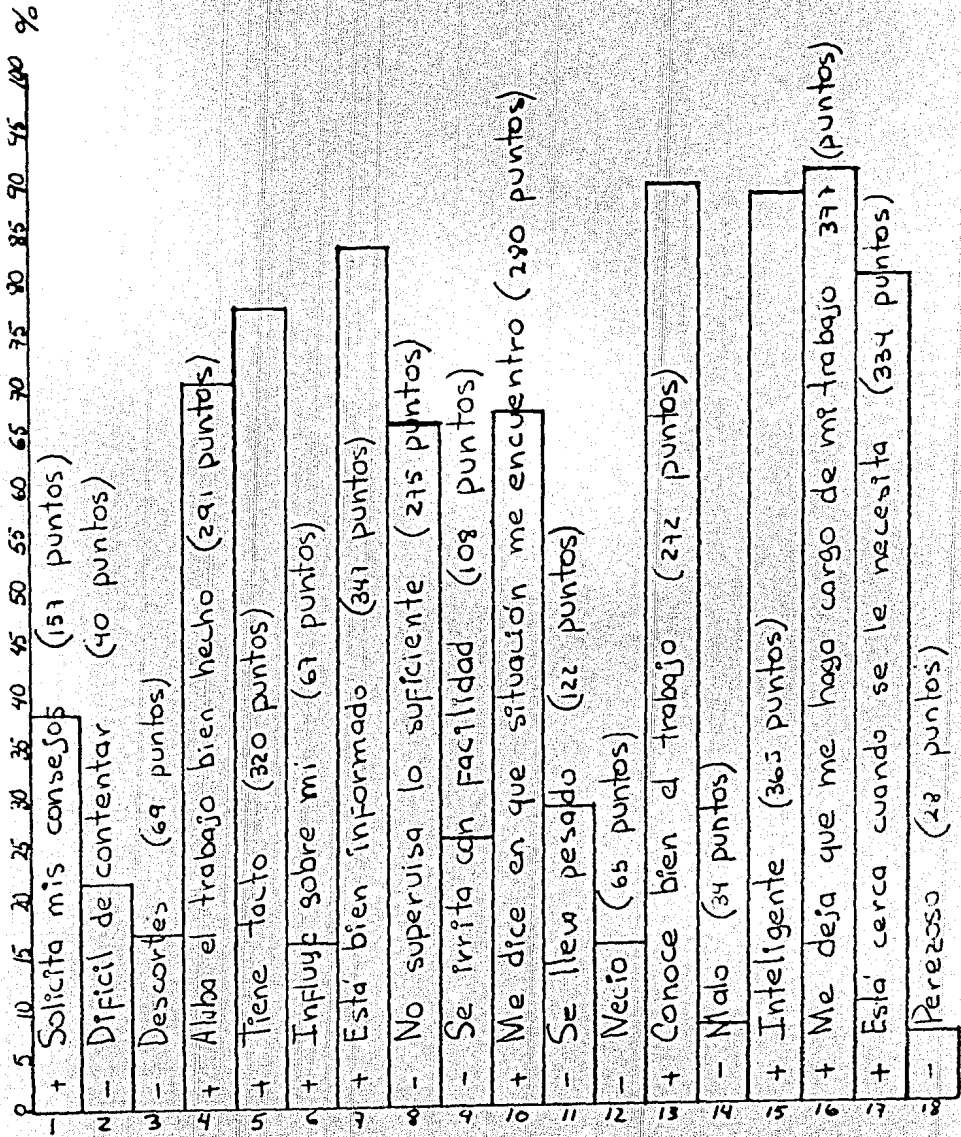 0 5 10 15 20 25 30 35 40 45 50 55 60 65 70 75 80 85 90 95 100 %
1 + Solicita mis consejos (157 puntos)
2 - Dificil de contentar (40 puntos)
3 - Descortés (69 puntos)
4 + Alaba el trabajo bien hecho (291 puntos)
5 + Tiene tacto (320 puntos)
6 + Influye sobre mi (67 puntos)
7 + Está bien informado (347 puntos)
8 - No supervisa lo suficiente (275 puntos)
9 - Se irrita con facilidad (108 puntos)
10 + Me dice en que situación me encuentro (280 puntos)
11 - Se lleva pesado (122 puntos)
12 - Necio (65 puntos)
13 + Conoce bien el trabajo (272 puntos)
14 - Malo (34 puntos)
15 + Inteligente (365 puntos)
16 + Me deja que me haga cargo de mi trabajo 377 (puntos)
17 + Está cerca cuando se le necesita (334 puntos)
18 - Perezoso (28 puntos)